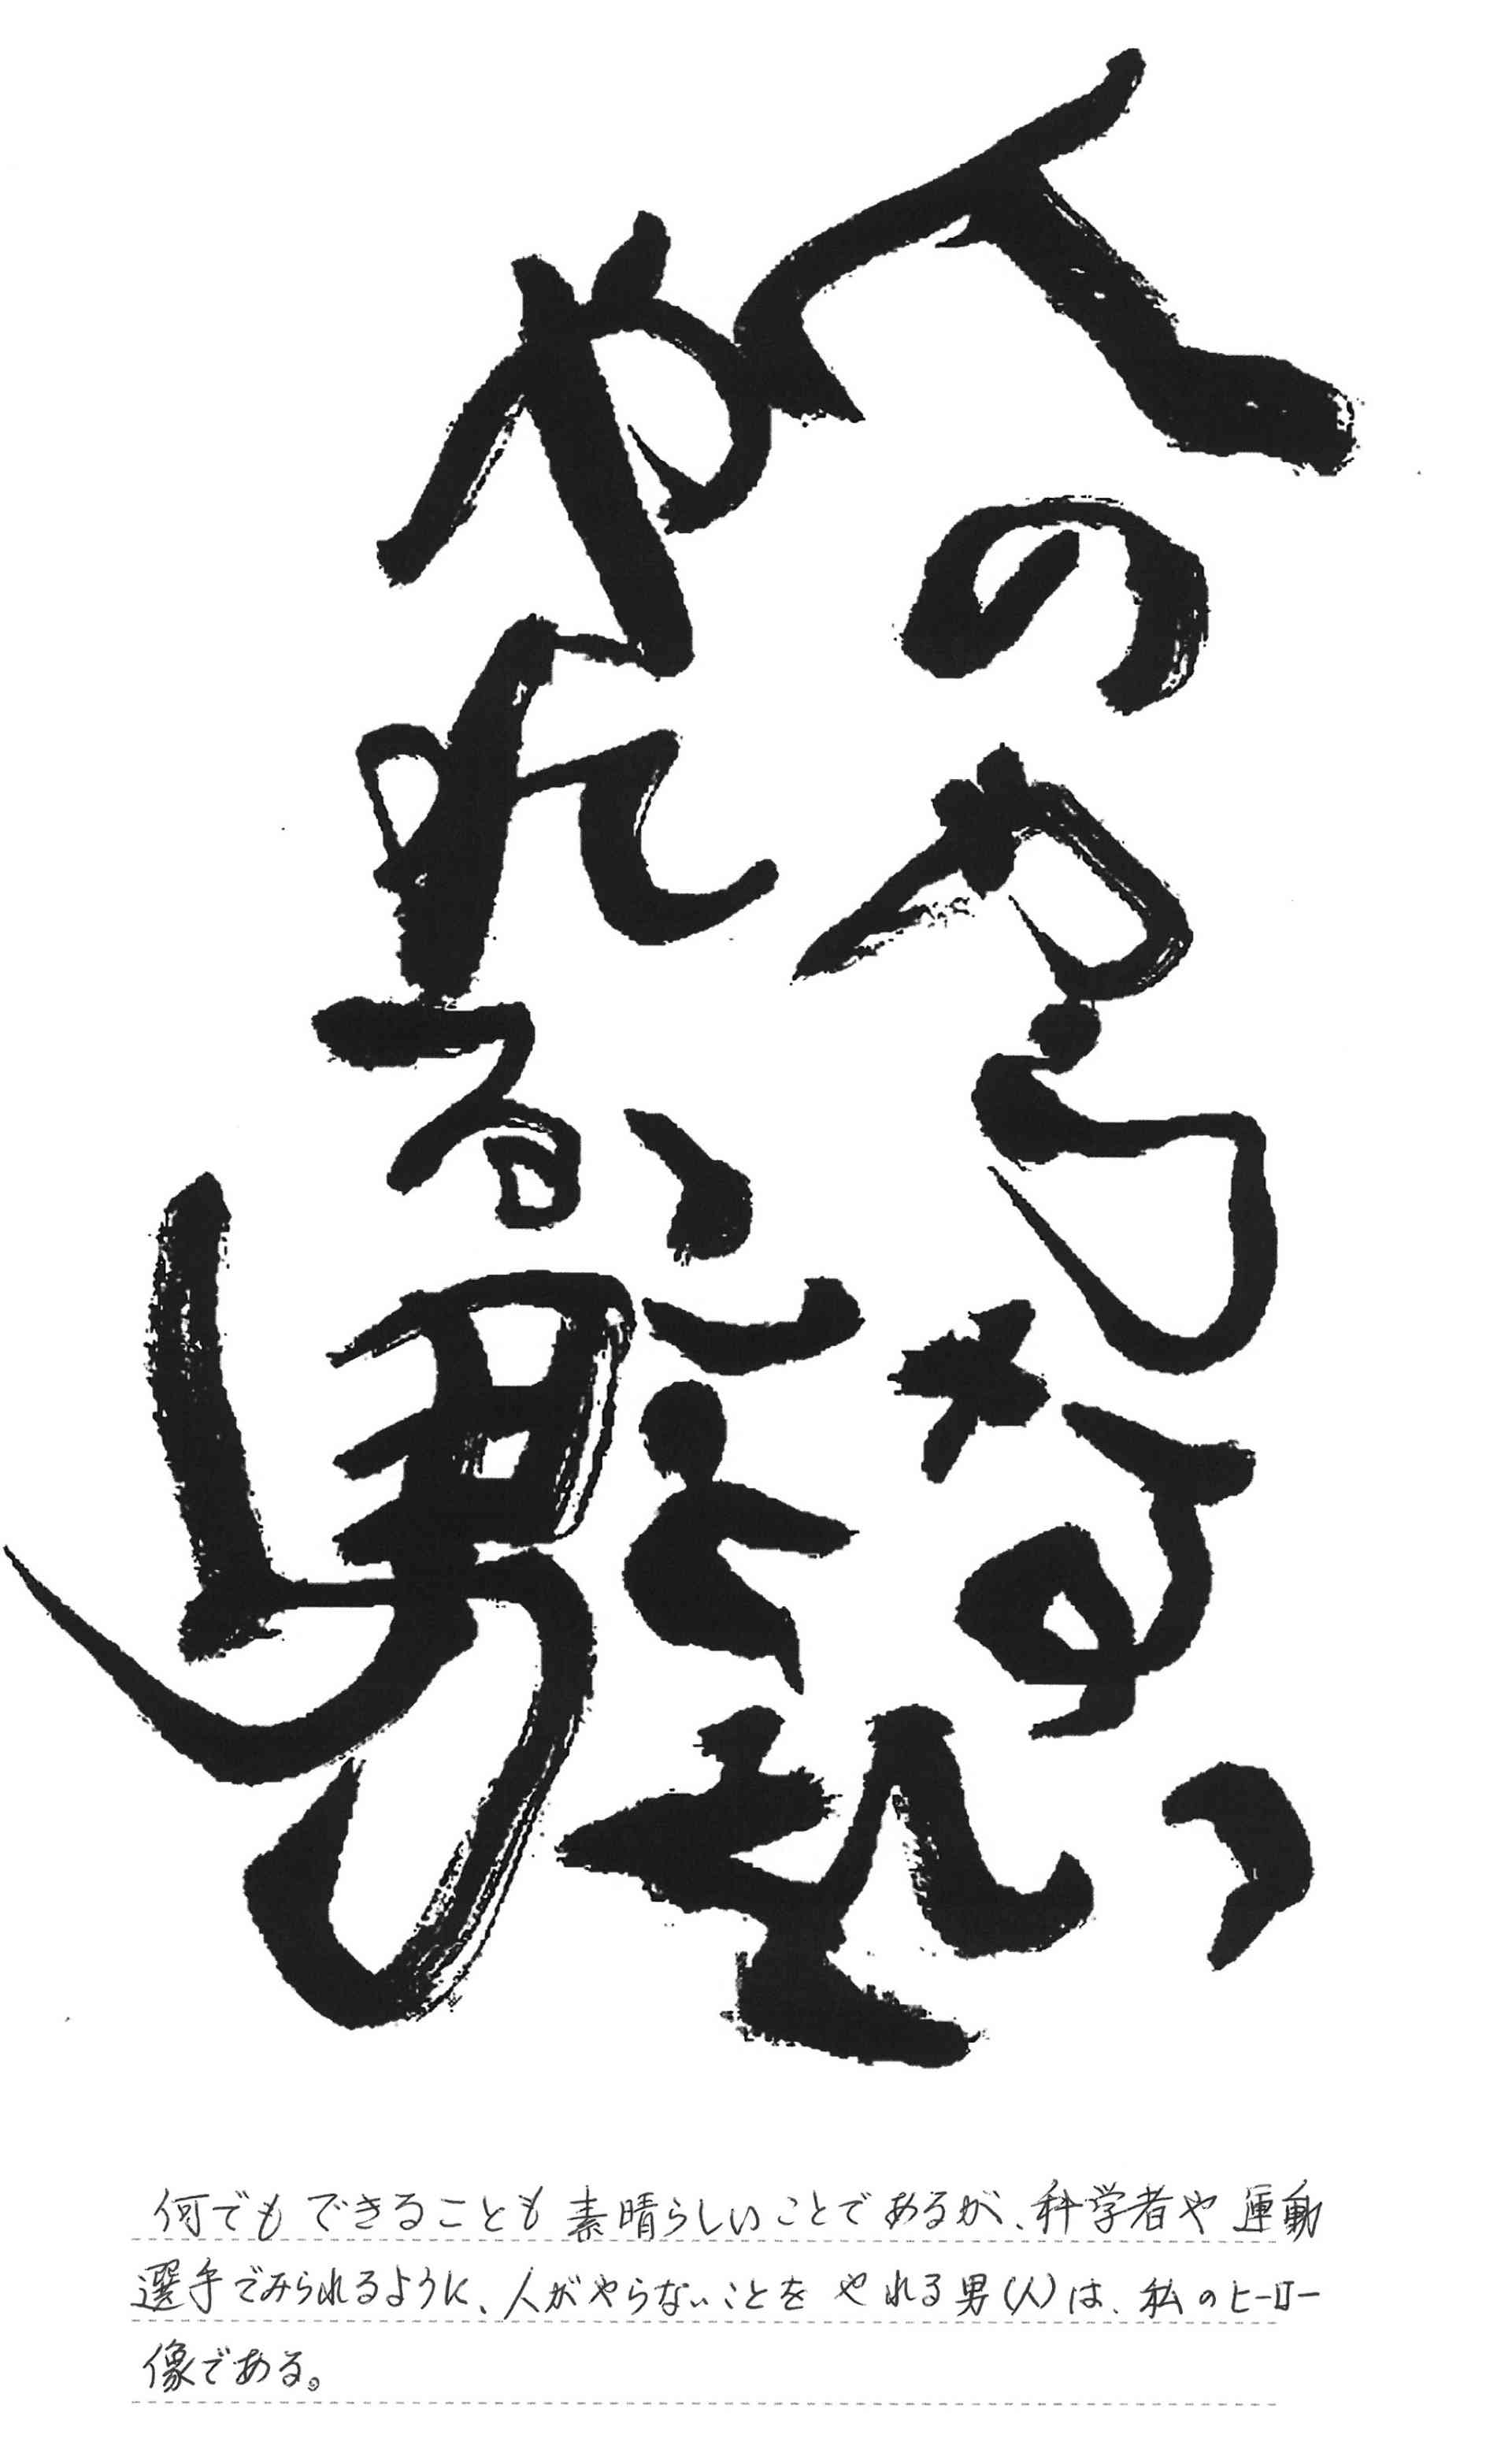 人のやらない
ことを
やれる男
何でもできることも素晴らしいことであるが、科学者や運動
選手でみられるように、人がやらないことをやれる男(人)は、私のヒーロー
像である。